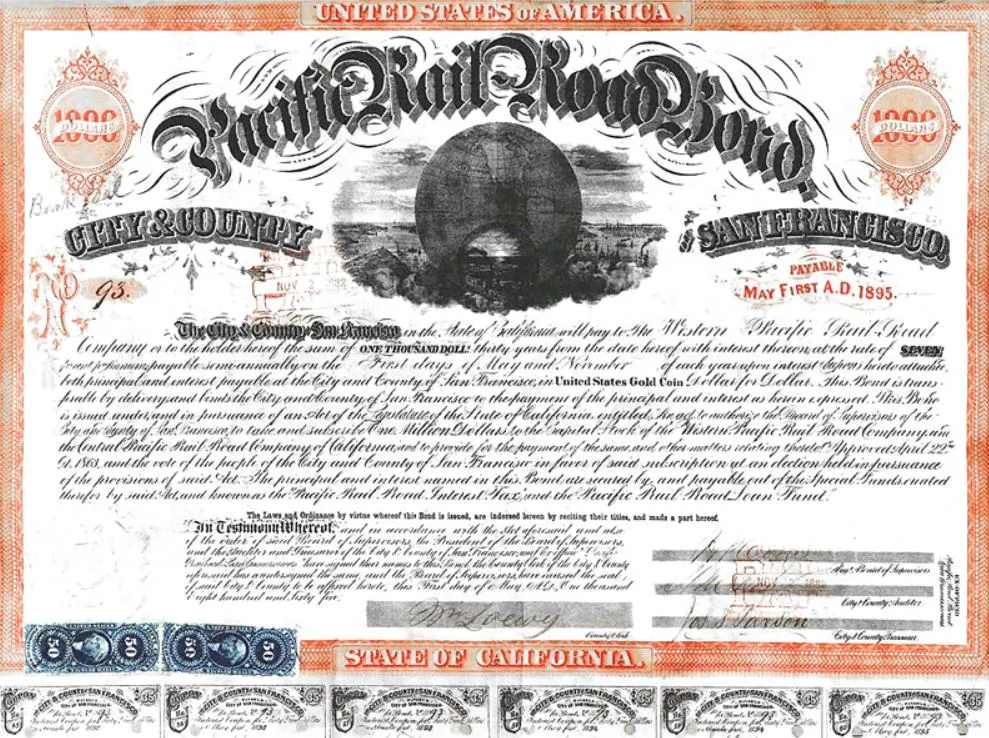 UNITED STATES OF AMERICA.
Pacific Rail Road Bond,
1000
DOLLARS
1000
DOLLARS
CITY & COUNTY
OF SAN FRANCISCO.
No 93.
NOV 2
PAYABLE
MAY FIRST A.D. 1895.
The City & County of San Francisco, in the State of California will pay to The Western Pacific Rail Road
Company or to the holder hereof the sum of ONE THOUSAND DOLLS. thirty years from the date hereof with interest thereon, at the rate of SEVEN
per annum, payable semi-annually on the First days of May and November of each year upon interest Coupons hereto attached,
both principal and interest payable at the City and County of San Francisco, in United States Gold Coin Dollar for Dollar. This Bond is trans-
ferable by delivery, and binds the City and County of San Francisco to the payment of the principal and interest as herein expressed. This Bond
is issued under, and in pursuance of an Act of the Legislature of the State of California, entitled, An act to authorize the Board of Supervisors of the
City and County of San Francisco, to take and subscribe One Million Dollars, to the Capital Stock of the Western Pacific Rail Road Company, and
the Central Pacific Rail Road Company of California, and to provide for the payment of the same, and other matters relating thereto. Approved April 22nd
1863, and the vote of the people of the City and County of San Francisco in favor of said subscription at an election held in pursuance
of the provisions of said Act. The principal and interest named in this Bond are secured by and payable out of the Special Funds created
therefor by said Act, and known as the Pacific Rail Road Interest Tax, and the Pacific Rail Road Loan Fund.
The Laws and Ordinance by virtue whereof this Bond is issued, are indorsed hereon by reciting their titles, and made a part hereof.
In Testimony Whereof, and in accordance with the Act aforesaid and also
of the order of said Board of Supervisors, the President of the Board of Supervisors,
and the Auditor and Treasurer of the City & County of San Francisco, and Ex officio
have signed their names to this Bond, the County Clerk of the City & County
aforesaid has countersigned the same, and the Board of Supervisors, have caused the seal
of said City & County to be affixed hereto, this First day of May, A.D. One thousand
Eight hundred and Sixty five.
Board of Supervisors
NOV 2
City & County Auditor
Wm Loewy
County Clerk
City & County Treasurer
EX OFFICIO
Pacific Rail Road
Loan Commissioners
50 50 50 50
STATE OF CALIFORNIA.
COUPON CITY & COUNTY SAN FRANCISCO $35
COUPON CITY & COUNTY SAN FRANCISCO $35
COUPON CITY & COUNTY SAN FRANCISCO $35
COUPON CITY & COUNTY SAN FRANCISCO $35
COUPON CITY & COUNTY SAN FRANCISCO $35
COUPON CITY & COUNTY SAN FRANCISCO $35